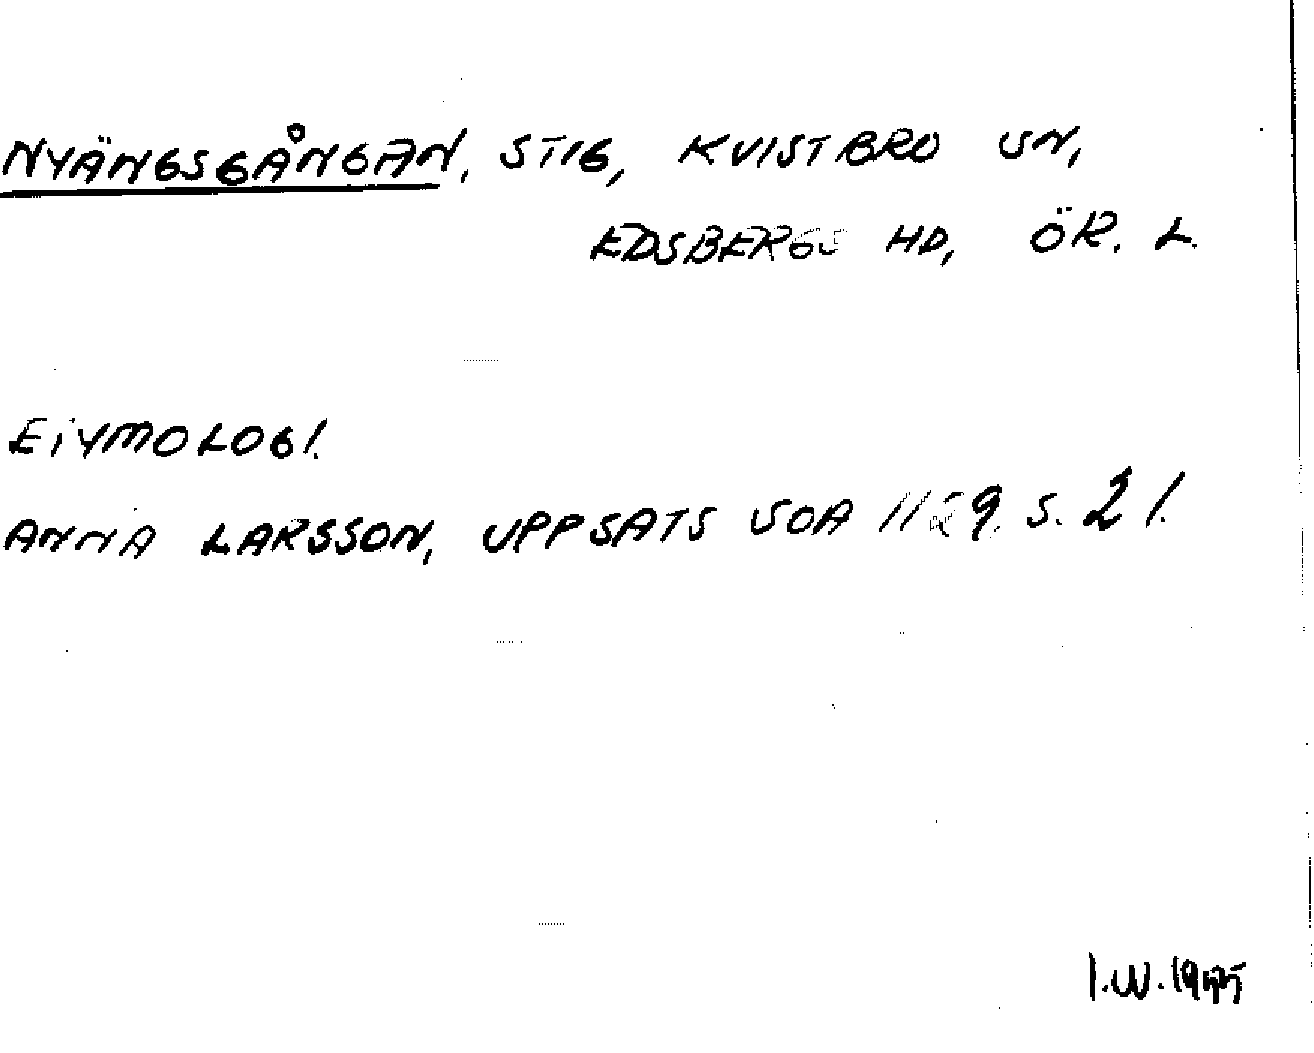 NYÄNGSGÅNGAN, STIG, KVISTBRO SN,
EDSBERGS HD, ÖR. L.
ETYMOLOGI.
ANNA LARSSON, UPPSATS SOA 1129. S. 21.
I.W.